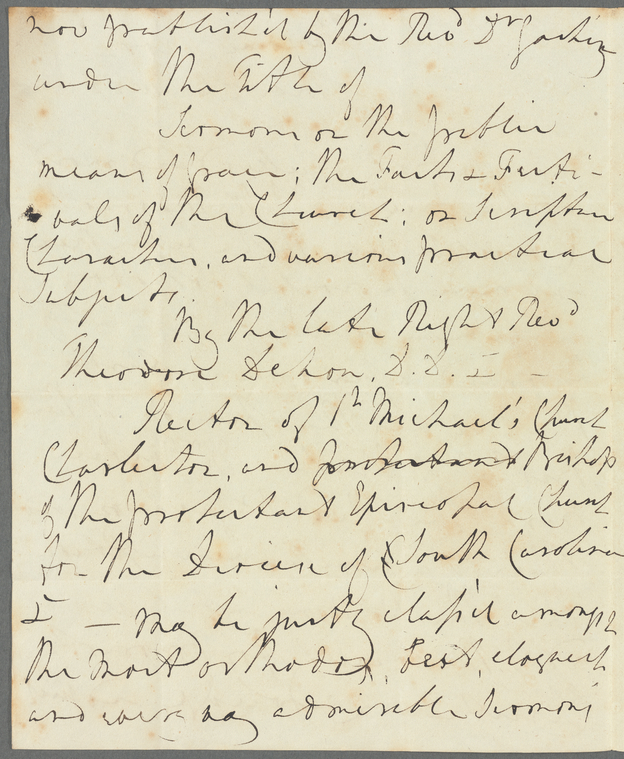 now publish'd by the Revd Dr
under the Title of
Sermons on the public
means of Grace; the Fasts & Festi-
vals of the Church; on Scripture
Characters, and various practical
Subjects,
By the late Right Revd
Theodore Dehon, D.D.
Rector of St Michael's Church
Charleston, and protestant Bishop
of the protestant Episcopal Church
for the Diocese of South Carolina
— may be justly class'd amongst
the most orthodox, best, eloquent
and every way admirable Sermons